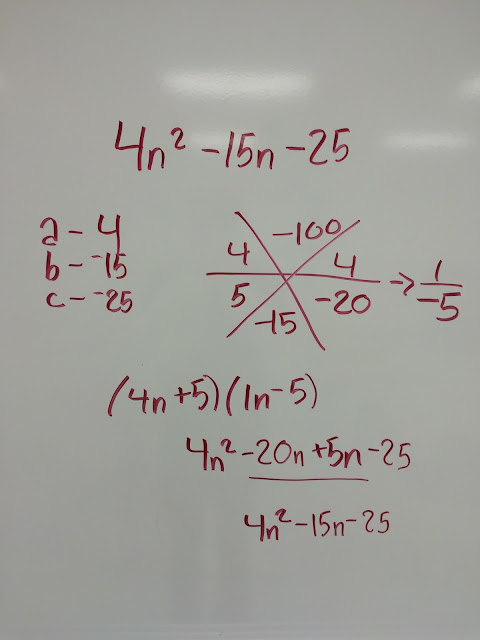 4n² -15n -25
a - 4
b - ⁻15
c - ⁻25
-100
4 4
5 -20 → 1/-5
-15
(4n+5)(1n-5)
4n² -20n +5n -25
4n² -15n -25